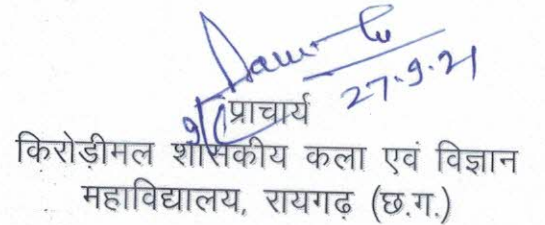 27.9.21
प्राचार्य
किरोड़ीमल शासकीय कला एवं विज्ञान
महाविद्यालय, रायगढ़ (छ.ग.)